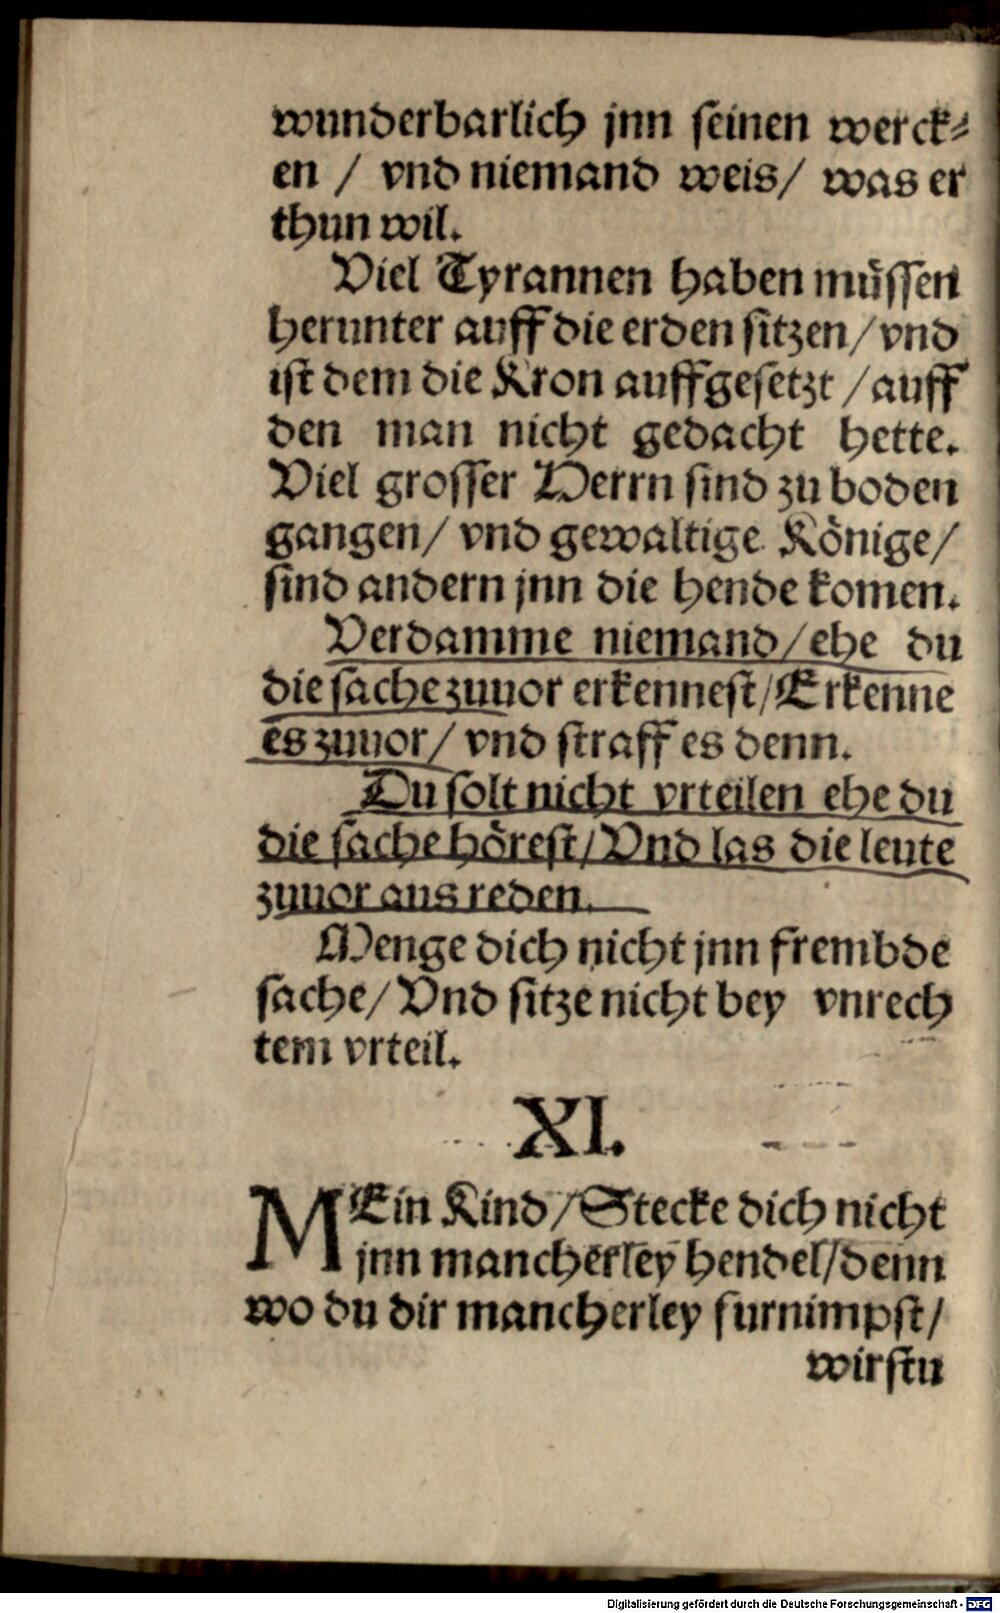 wunderbarlich jnn seinen werck⸗
en / vnd niemand weis/ was er
thun wil.
Viel Tyrannen haben müssen
herunter auff die erden sitzen/vnd
ist dem die Kron auffgesetzt /auff
den man nicht gedacht hette.
Viel grosser Herrn sind zu boden
gangen/ vnd gewaltige Könige/
sind andern jnn die hende komen.
Verdamme niemand/ehe du
die sache zuuor erkennest/Erkenne
es zuuor/ vnd straff es denn.
Du solt nicht vrteilen ehe du
die sache hörest/Vnd las die leute
zuuor aus reden.
Menge dich nicht jnn frembde
sache/Vnd sitze nicht bey vnrech
tem vrteil.
XI.
MEin Kind/Stecke dich nicht
jnn mancherley hendel/denn
wo du dir mancherley furnimpst/
wirstu
Digitalisierung gefördert durch die Deutsche Forschungsgemeinschaft - DFG